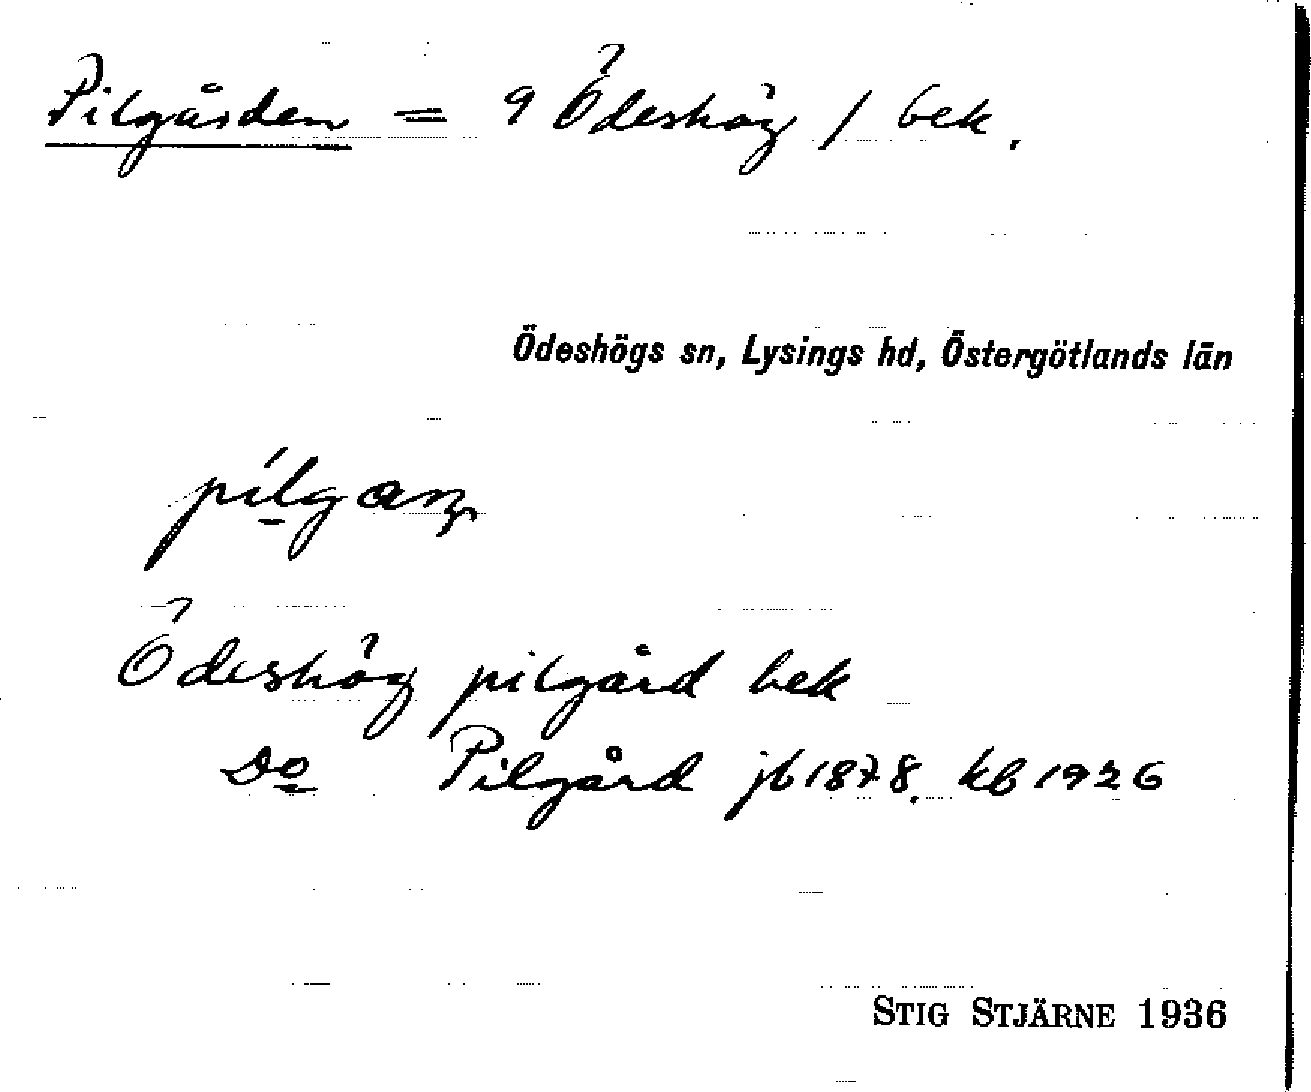 Pilgården = 9 Ödeshög / bek.
Ödeshögs sn, Lysings hd, Östergötlands län
Ödeshög pilgård bek
Do Pilgård jb 1878. kb 1926
STIG STJÄRNE 1936